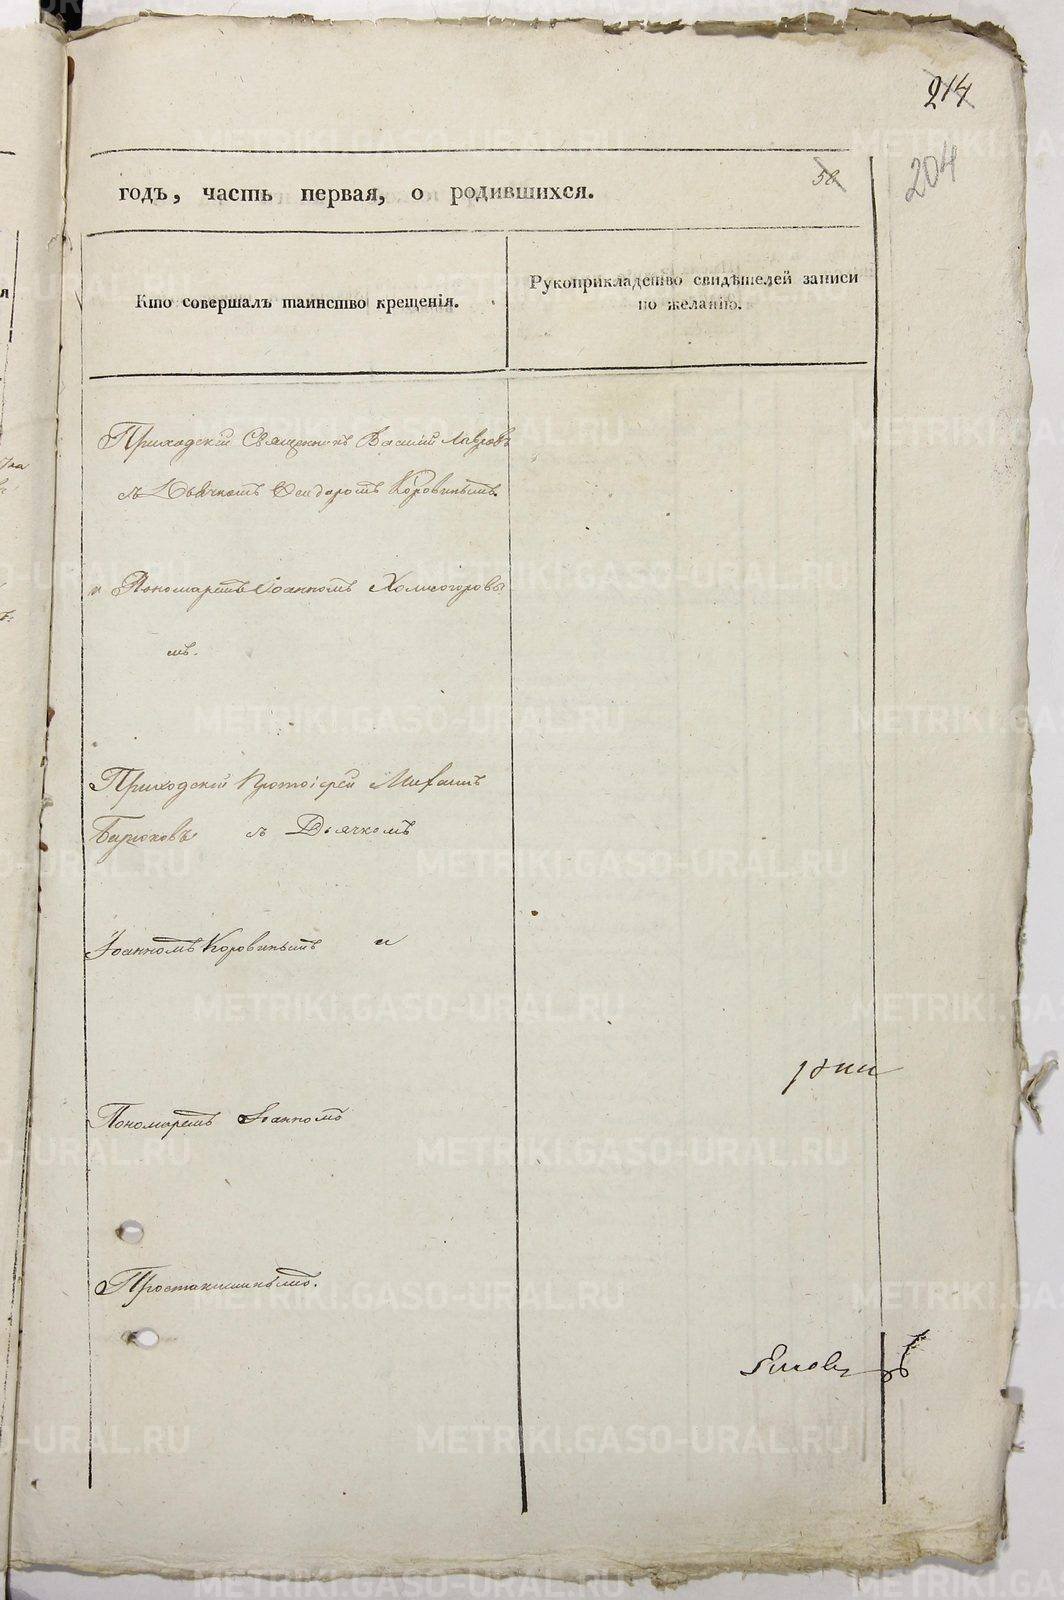 214
204
58
годъ, часть первая, о родившихся.
Кто совершалъ таинство крещенія.
Рукоприкладство свидѣтелей записи
по желанію.
Приходскій Священникъ Василій Лавровъ
съ Дьячкомъ Ѳеодоромъ Коровинымъ
и Пономаремъ Іоанномъ Холмогоровы
мъ.
Приходскій Протоіерей Михаилъ
Бирюковъ съ Дьячкомъ
Іоанномъ Коровинымъ и
Пономаремъ Іоанномъ
METRIKI.GASO-URAL.RU